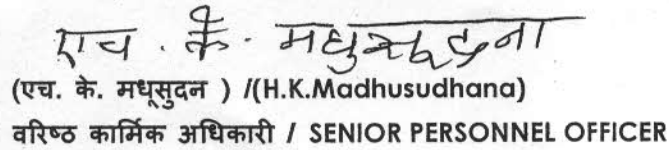 एच. के. मधुसूदना
(एच. के. मधूसुदन ) /(H.K.Madhusudhana)
वरिष्ठ कार्मिक अधिकारी / SENIOR PERSONNEL OFFICER